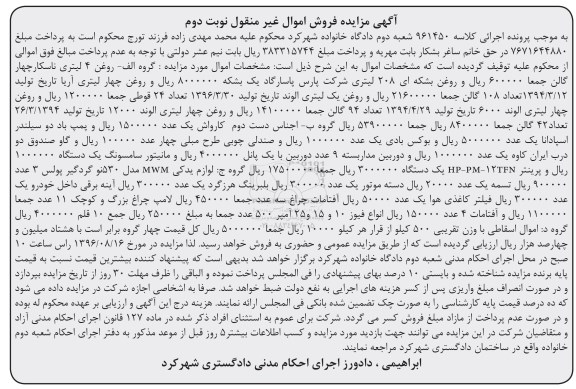 آگهی مزایده فروش اموال غیر منقول نوبت دوم
به موجب پرونده اجرائی کلاسه ۹۶۱۴۵۰ شعبه دوم دادگاه خانواده شهرکرد محکوم علیه محمد مهدی زاده فرزند تورج محکوم است به پرداخت مبلغ
۷۶۷۱۶۴۴۸۸۰ در حق خانم ساغر بشکار بابت مهریه و پرداخت مبلغ ۳۸۳۳۱۵۷۴۴ ریال بابت نیم عشر دولتی با توجه به عدم پرداخت مبالغ فوق اموالی
از محکوم علیه توقیف گردیده است که مشخصات اموال به این شرح ذیل است: مشخصات اموال مورد مزایده : گروه الف- روغن ۴ لیتری ناسکارچهار
گالن جمعا ۶۰۰۰۰۰ ریال و روغن بشکه ای ۲۰۸ لیتری شرکت پارس پاسارگاد یک بشکه ۸۰۰۰۰۰۰ ریال و روغن چهار لیتری آریا تاریخ تولید
۱۳۹۴/۳/۱۲تعداد ۱۰۸ گالن جمعا ۲۱۶۰۰۰۰۰ ریال و روغن یک لیتری الوند تاریخ تولید ۱۳۹۶/۳/۳۰ تعداد ۲۴ قوطی جمعا ۱۲۰۰۰۰۰ ریال و روغن
چهار لیتری الوند ۶۰۰۰ تاریخ تولید ۱۳۹۴/۴/۲۹ تعداد ۹۴ گالن جمعا ۱۴۱۰۰۰۰۰ ریال و روغن چهار لیتری الوند ۱۲۰۰۰ تاریخ تولید ۲۶/۳/۱۳۹۴
تعداد۴۲ گالن جمعا ۸۴۰۰۰۰۰ ریال جمعا ۵۳۹۰۰۰۰۰ ریال گروه ب- اجناس دست دوم کارواش یک عدد ۱۵۰۰۰۰۰ ریال و پمپ باد دو سیلندر
اسپادانا یک عدد ۵۰۰۰۰۰۰ ریال و بوکس بادی یک عدد ۱۰۰۰۰۰۰ ریال و صندلی چوبی طرح مبلی چهار عدد ۱۰۰۰۰۰۰ ریال و گاو صندوق دو
درب ایران کاوه یک عدد ۱۰۰۰۰۰۰ ریال و دوربین مداربسته ۹ عدد دوربین با یک پانل ۴۰۰۰۰۰۰ ریال و مانیتور سامسونگ یک دستگاه ۱۰۰۰۰۰۰
ریال و پرینتر HP-PM-۱۲TFN یک دستگاه ۳۰۰۰۰۰۰ ریال جمعا ۱۷۵۰۰۰۰۰ ریال گروه ج: لوازم یدکی MWM مدل ۵۳۰نو گردگیر پولس ۳ عدد
۹۰۰۰۰۰ ریال تسمه یک عدد ۲۰۰۰۰ ریال دسته موتور یک عدد ۳۰۰۰۰۰ ریال بلبرینگ هرزگرد یک عدد ۳۰۰۰۰۰ ریال آینه برقی داخل خودرو یک
عدد ۳۰۰۰۰۰ ریال فیلتر کاغذی هوا یک عدد ۵۰۰۰۰ ریال آفتامات چراغ سه عدد جمعا ۴۵۰۰۰۰ ریال لامپ چراغ بزرگ و کوچک ۱۱ عدد جمعا
۱۱۰۰۰۰۰ ریال و آفتامات ۴ عدد ۱۵۰۰۰۰ ریال انواع فیوز ۱۰ و ۱۵ و۲۵ آمپر ۵۰ عدد جمعا به مبلغ ۲۵۰۰۰۰ ریال جمع ۱۰ قلم ۴۰۰۰۰۰۰ ریال
گروه د: اموال اسقاطی با وزن تقریبی ۵۰۰ کیلو از قرار هر کیلو ۱۰۰۰۰ ریال جمعا ۵۰۰۰۰۰۰ ریال کل قیمت چهار گروه برابر است با هشتاد میلیون و
چهارصد هزار ریال ارزیابی گردیده است که از طریق مزایده عمومی و حضوری به فروش خواهد رسید. لذا مزایده در مورخ ۱۳۹۶/۰۸/۱۶ راس ساعت ۱۰
صبح در محل اجرای احکام مدنی شعبه دوم دادگاه خانواده شهرکرد برگزار خواهد شد بدیهی است که پیشنهاد کننده بیشترین قیمت نسبت به قیمت
پایه برنده مزایده شناخته شده و بایستی ۱۰ درصد بهای پیشنهادی را فی المجلس پرداخت نموده و الباقی را ظرف مهلت ۳۰ روز از تاریخ مزایده بپردازد
و در صورت انصراف مبلغ واریزی پس از کسر هزینه های اجرایی به نفع دولت ضبط خواهد شد. صرفا به اشخاصی اجازه شرکت در مزایده داده می شود
که ده درصد قیمت پایه کارشناسی را به صورت چک تضمین شده بانکی فی المجلس ارائه نمایند. هزینه درج این آگهی و ارزیابی بر عهده محکوم له بوده
و در صورت عدم پرداخت از مازاد مبلغ فروش کسر می گردد. شرکت برای عموم به استثنای افراد ذکر شده در ماده ۱۲۷ قانون اجرای احکام مدنی آزاد
و متقاضیان شرکت در این مزایده می توانند جهت بازدید مورد مزایده و کسب اطلاعات بیشتر۵ روز قبل از موعد مذکور به دفتر اجرای احکام شعبه دوم
خانواده واقع در ساختمان دادگستری شهرکرد مراجعه نمایند.
ابراهیمی ، دادورز اجرای احکام مدنی دادگستری شهرکرد